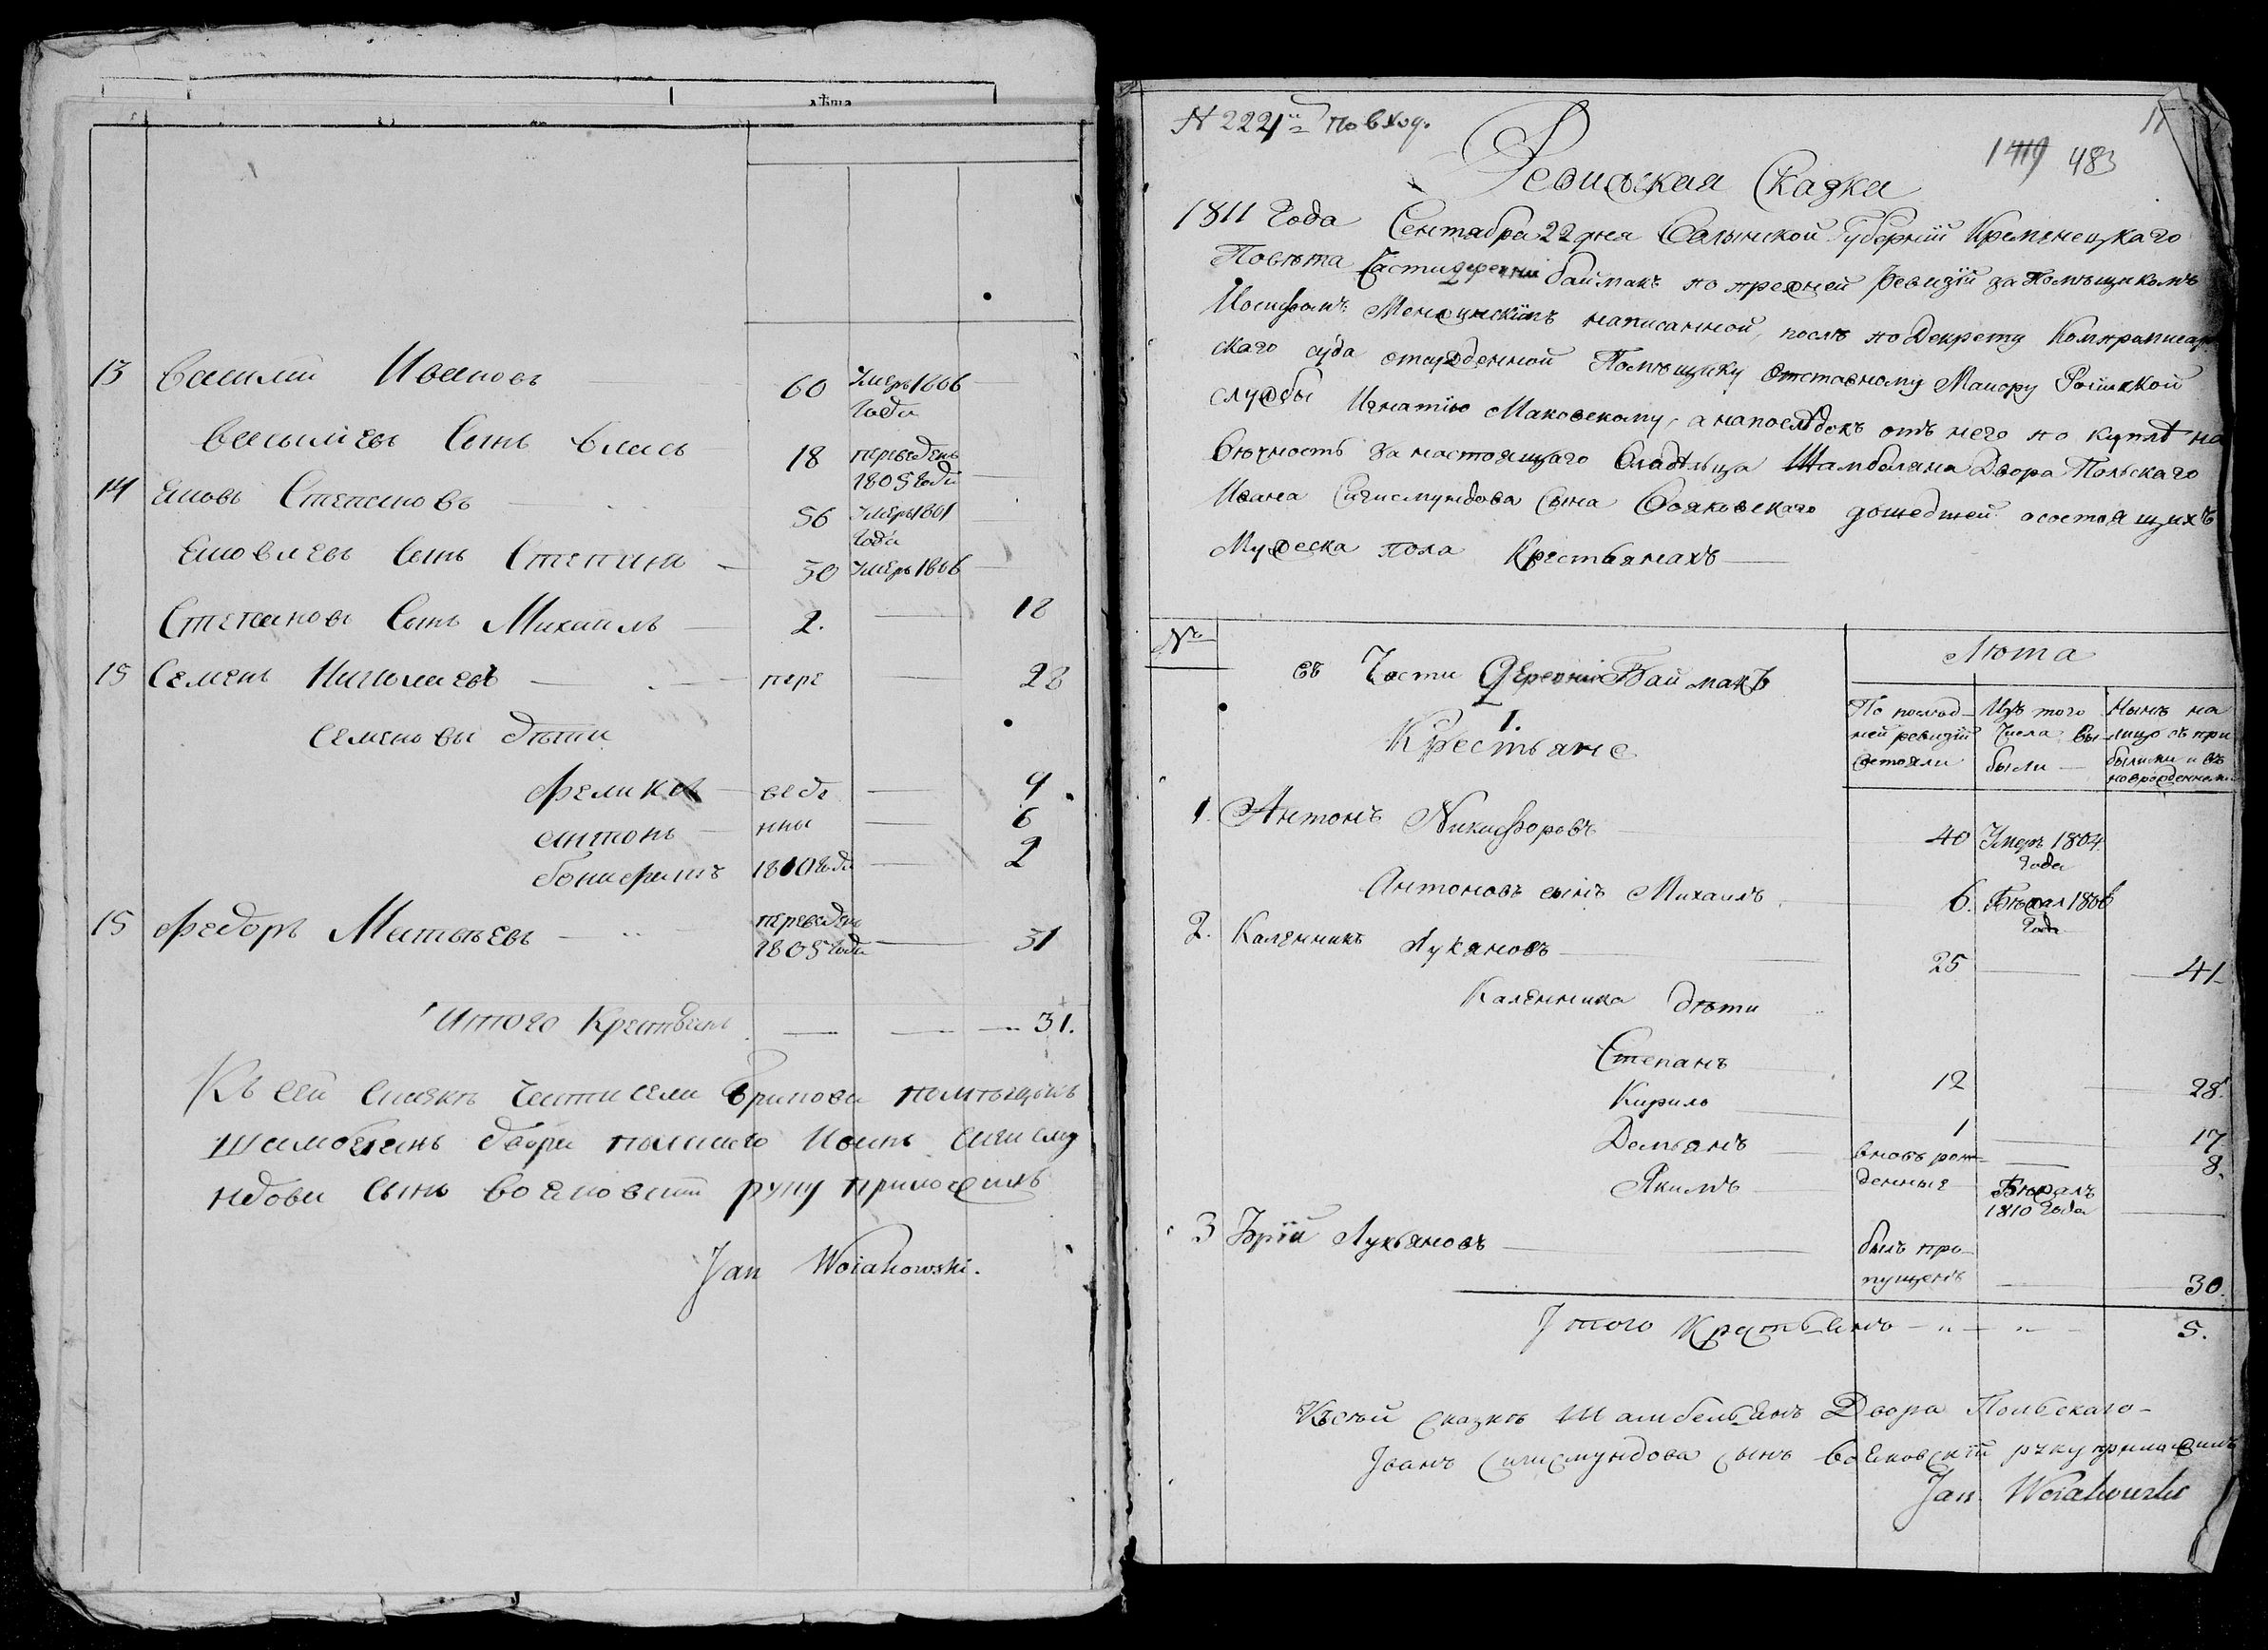 лѣта
13 Василій Ивановъ 60 Умеръ 1806
года
Васильевъ Сынъ Власъ 18 переведенъ
1805 года
14 Яковъ Степановъ 56 Умеръ 1801
Года
Яковлевъ Сынъ Степанъ 30 Умеръ 1806
Степановъ Сынъ Михайлъ 2. 18
15 Семенъ Николаевъ пере 28
Семеновы дѣти
Феликсъ веде 9
антонъ нны 6
бонифатъ 1810 года 2
15 Федоръ Матвѣевъ переведенъ
1805 года 31
Итого Крестьянъ 31.
Къ сей сказкѣ части села помѣщикъ
шамбелянъ двора полскаго Иванъ сигисму
ндова сынъ вояковскій руку приложилъ
Jan Woiakowski.
N 2221 по вход.
11
1419 483
Ревиская Сказка
1811 Года Сентабра 22 дня Волынской Губерніи Кременецкаго
Повѣта Части деревни баймакъ по прежней Ревизіи за Помѣщикомъ
Иосифомъ Менжинскимъ написанной, послѣ по Декрету Компромисар
скаго суда отсужденной Помѣщику Отставному Маиору Россійской
службы Игнатію Маковскому, а напослѣдокъ отъ него по куплѣ на
Вѣчность за настоящаго Владѣльца Шамбеляна Двора Польскаго
Ивана Сигисмундова Сына Вояковскаго дошедшей о состоящихъ
Мужеска пола Крестьянахъ
№ Лѣта
въ Части Деревни Баймакъ
I.
Крестьяне
По послѣд-
ней ревизіи
состояли
Изъ того
Числа вы-
были
Нынѣ на
лицо съ при
былыми и въ
новрожденными
1. Антонъ Никифоровъ 40 Умеръ 1804
Года
Антоновъ сынъ Михаилъ 6. Бѣжал 1806
Года
2. Каленникъ Лукяновъ 25 41
Каленника дѣти
Степанъ 12 28.
Кирило 1 17
Демьянъ вновь рож- 8.
Якимъ денные Бѣжалъ
1810 Года
3 Юрій Лукьяновъ былъ про-
пущенъ 30.
Jтого Крестьянъ 5.
Къ сей сказкѣ Шамбельянъ Двора Польскаго
Jванъ Сигисмундова сынъ вояковскій руку приложилъ
Jan Woiakowski